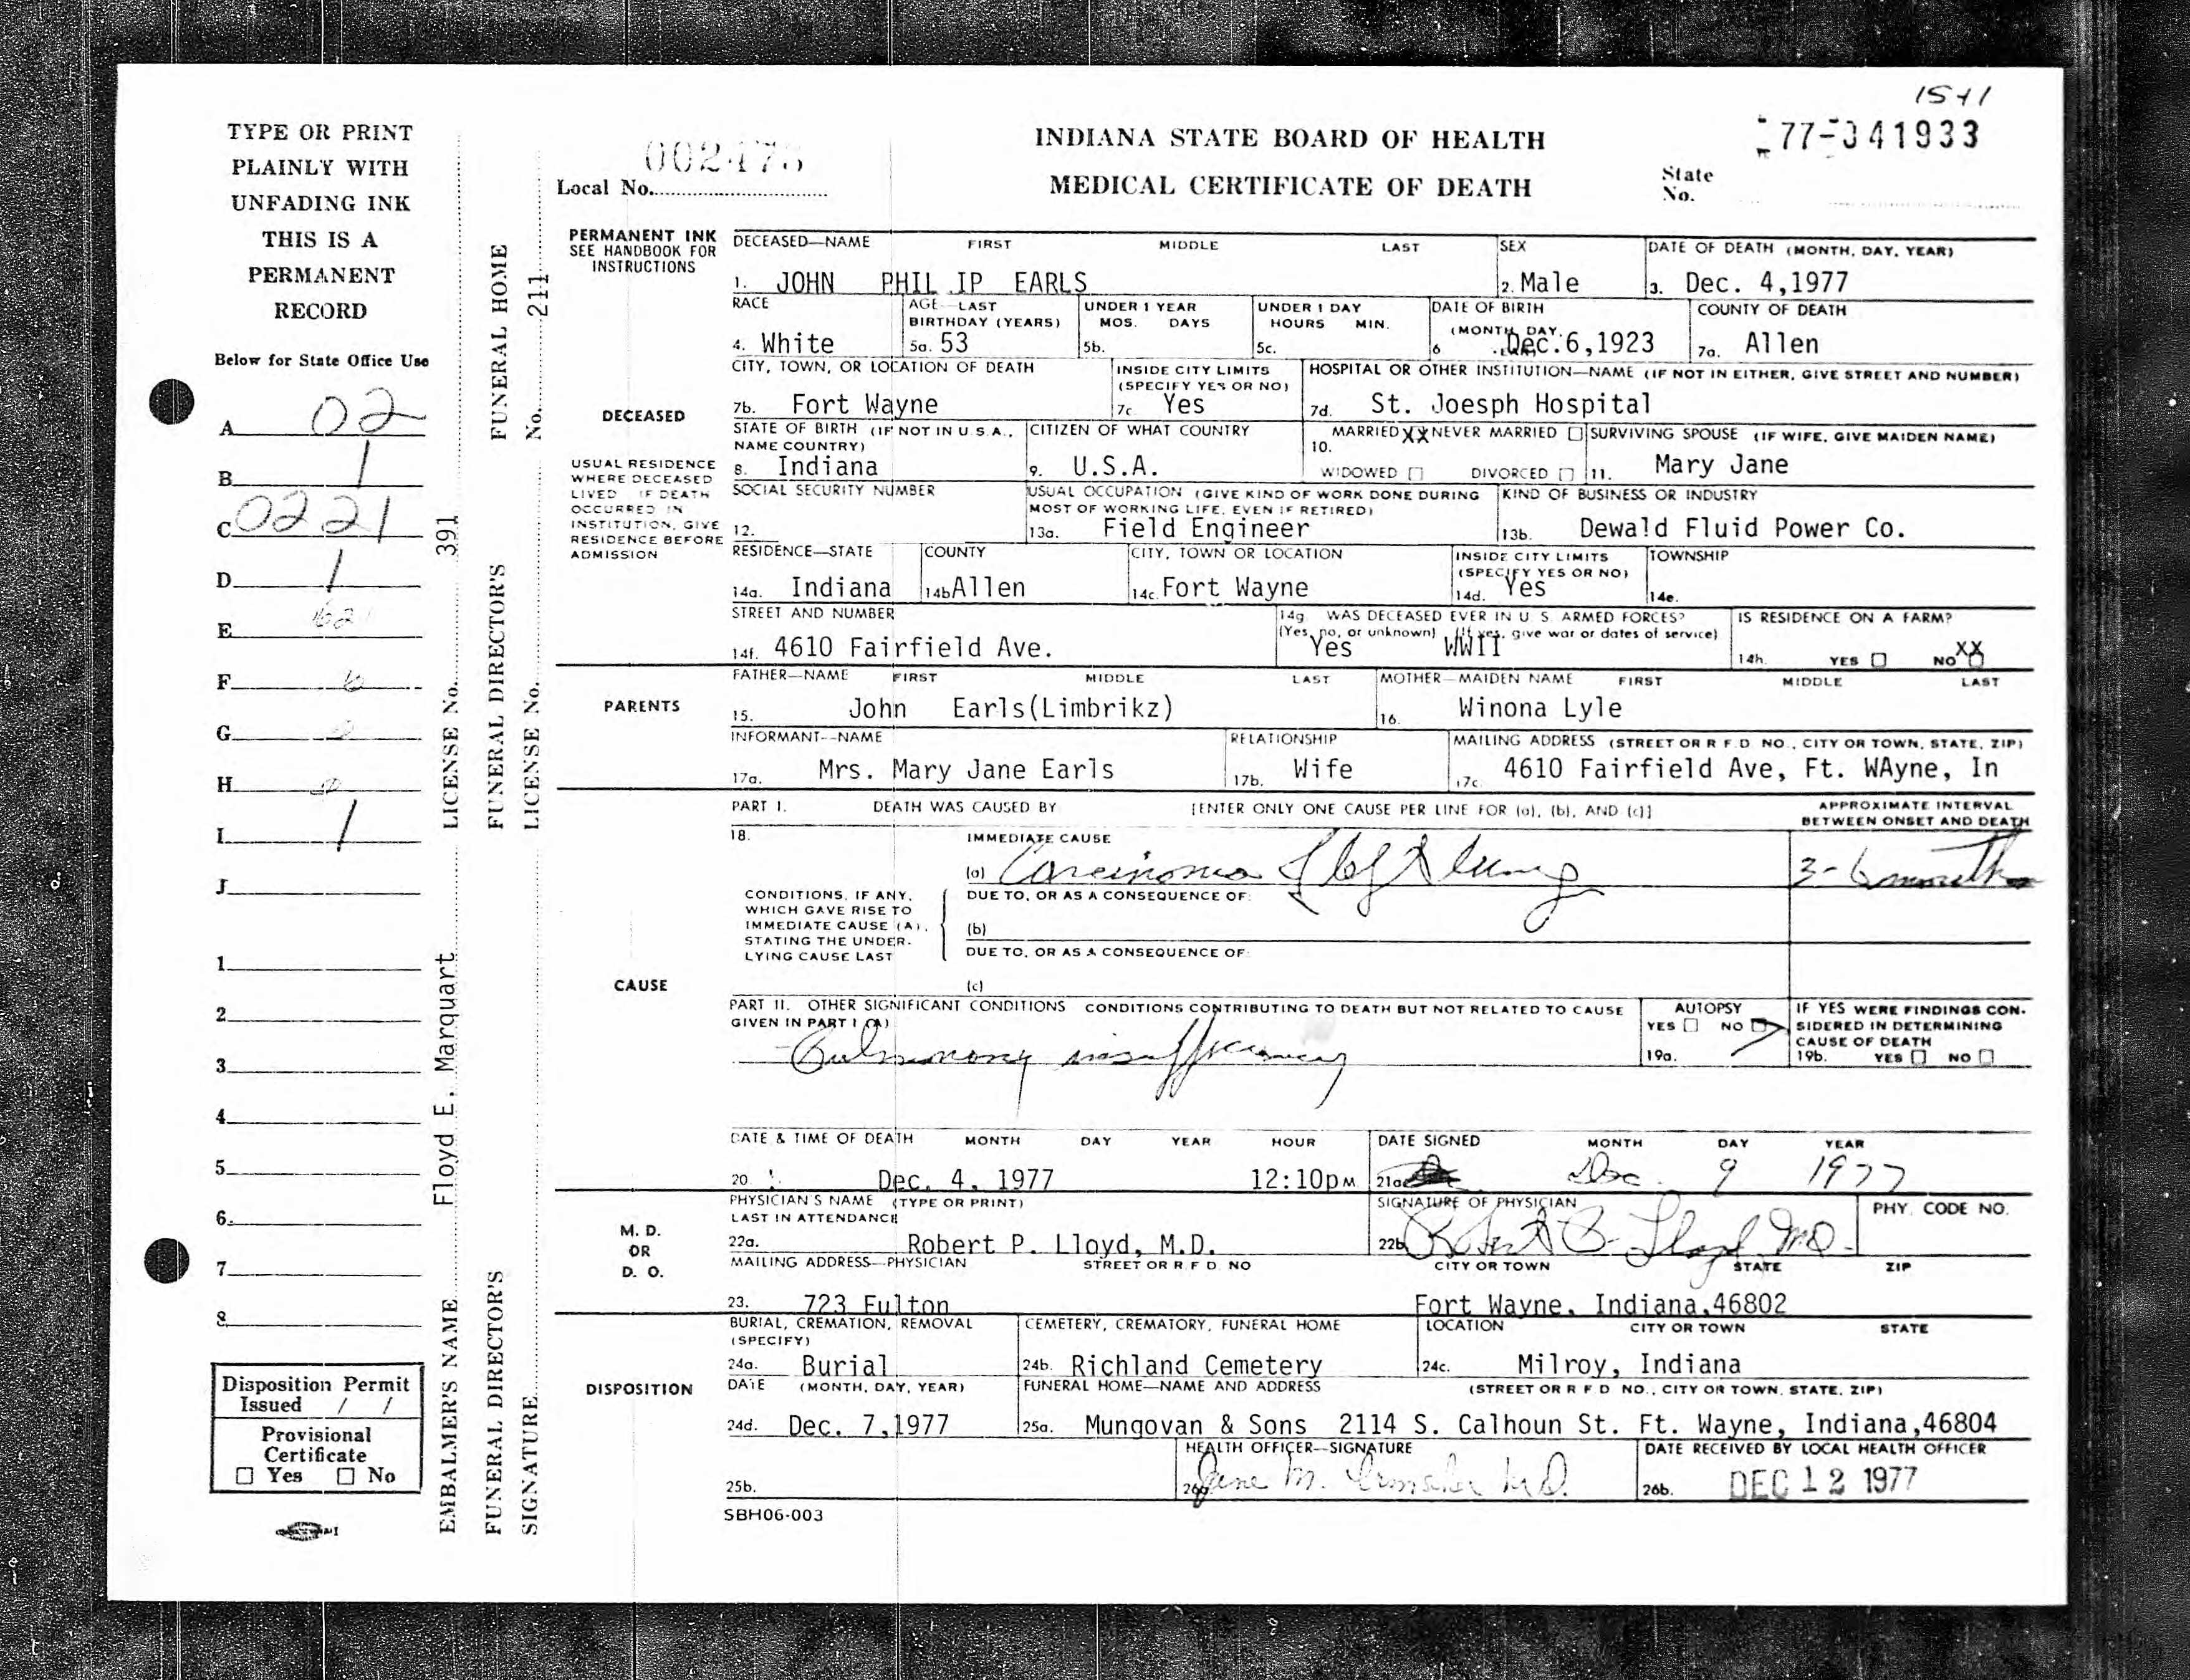 1541
TYPE OR PRINT
PLAINLY WITH
UNFADING INK
THIS IS A
PERMANENT
RECORD
Below for State Office Use
A 02
B 1
C 0221
D 1
E 162
F 6
G
H
I 1
J
1
2
3
4
5
6
7
8
Disposition Permit
Issued / /
Provisional
Certificate
☐ Yes ☐ No
EMBALMER'S NAME Floyd E. Marquart LICENSE No. 391
FUNERAL DIRECTOR'S FUNERAL DIRECTOR'S FUNERAL HOME
SIGNATURE LICENSE No. No. 211
Local No.
INDIANA STATE BOARD OF HEALTH
MEDICAL CERTIFICATE OF DEATH
77-041933
State
No.
PERMANENT INK
SEE HANDBOOK FOR
INSTRUCTIONS
DECEASED—NAME FIRST MIDDLE LAST SEX DATE OF DEATH (MONTH, DAY, YEAR)
1. JOHN PHIL IP EARLS 2. Male 3. Dec. 4,1977
RACE AGE—LAST BIRTHDAY (YEARS) UNDER 1 YEAR MOS. DAYS UNDER 1 DAY HOURS MIN. DATE OF BIRTH (MONTH, DAY, COUNTY OF DEATH
4. White 5a. 53 5b. 5c. 6 Dec.6,1923 7a. Allen
CITY, TOWN, OR LOCATION OF DEATH INSIDE CITY LIMITS (SPECIFY YES OR NO) HOSPITAL OR OTHER INSTITUTION—NAME (IF NOT IN EITHER, GIVE STREET AND NUMBER)
DECEASED
7b. Fort Wayne 7c. Yes 7d. St. Joesph Hospital
STATE OF BIRTH (IF NOT IN U.S.A., NAME COUNTRY) CITIZEN OF WHAT COUNTRY 10. MARRIED XX NEVER MARRIED ☐ WIDOWED ☐ DIVORCED ☐ SURVIVING SPOUSE (IF WIFE, GIVE MAIDEN NAME)
8. Indiana 9. U.S.A. 11. Mary Jane
USUAL RESIDENCE
WHERE DECEASED
LIVED IF DEATH
OCCURRED IN
INSTITUTION, GIVE
RESIDENCE BEFORE
ADMISSION
SOCIAL SECURITY NUMBER USUAL OCCUPATION (GIVE KIND OF WORK DONE DURING MOST OF WORKING LIFE, EVEN IF RETIRED) KIND OF BUSINESS OR INDUSTRY
12. 13a. Field Engineer 13b. Dewald Fluid Power Co.
RESIDENCE—STATE COUNTY CITY, TOWN OR LOCATION INSIDE CITY LIMITS (SPECIFY YES OR NO) TOWNSHIP
14a. Indiana 14b Allen 14c. Fort Wayne 14d. Yes 14e.
STREET AND NUMBER 14g WAS DECEASED EVER IN U.S. ARMED FORCES? (Yes, no, or unknown) (If yes, give war or dates of service) IS RESIDENCE ON A FARM?
14f. 4610 Fairfield Ave. Yes WWII 14h. YES ☐ NO XX
PARENTS
FATHER—NAME FIRST MIDDLE LAST MOTHER—MAIDEN NAME FIRST MIDDLE LAST
15. John Earls(Limbrikz) 16. Winona Lyle
INFORMANT--NAME RELATIONSHIP MAILING ADDRESS (STREET OR R F.D NO., CITY OR TOWN, STATE, ZIP)
17a. Mrs. Mary Jane Earls 17b. Wife 17c. 4610 Fairfield Ave, Ft. WAyne, In
PART I. DEATH WAS CAUSED BY [ENTER ONLY ONE CAUSE PER LINE FOR (a), (b), AND (c)] APPROXIMATE INTERVAL BETWEEN ONSET AND DEATH
18. IMMEDIATE CAUSE
(a) Carcinoma of left lung 3-6 months
CONDITIONS, IF ANY,
WHICH GAVE RISE TO
IMMEDIATE CAUSE (A),
STATING THE UNDER-
LYING CAUSE LAST
DUE TO, OR AS A CONSEQUENCE OF:
(b)
DUE TO, OR AS A CONSEQUENCE OF:
(c)
CAUSE
PART II. OTHER SIGNIFICANT CONDITIONS CONDITIONS CONTRIBUTING TO DEATH BUT NOT RELATED TO CAUSE GIVEN IN PART I (A)
Pulmonary insufficiency
AUTOPSY YES ☐ NO ☐ 19a.
IF YES WERE FINDINGS CON-
SIDERED IN DETERMINING
CAUSE OF DEATH
19b. YES ☐ NO ☐
DATE & TIME OF DEATH MONTH DAY YEAR HOUR DATE SIGNED MONTH DAY YEAR
20. Dec. 4, 1977 12:10pM 21a Dec. 9 1977
M. D.
OR
D. O.
PHYSICIAN'S NAME (TYPE OR PRINT) LAST IN ATTENDANCE SIGNATURE OF PHYSICIAN PHY. CODE NO.
22a. Robert P. Lloyd, M.D. 22b Robert P. Lloyd MD.
MAILING ADDRESS—PHYSICIAN STREET OR R.F.D. NO CITY OR TOWN STATE ZIP
23. 723 Fulton Fort Wayne, Indiana,46802
DISPOSITION
BURIAL, CREMATION, REMOVAL (SPECIFY) CEMETERY, CREMATORY, FUNERAL HOME LOCATION CITY OR TOWN STATE
24a. Burial 24b. Richland Cemetery 24c. Milroy, Indiana
DATE (MONTH, DAY, YEAR) FUNERAL HOME—NAME AND ADDRESS (STREET OR R F D NO., CITY OR TOWN, STATE, ZIP)
24d. Dec. 7,1977 25a. Mungovan & Sons 2114 S. Calhoun St. Ft. Wayne, Indiana,46804
HEALTH OFFICER--SIGNATURE DATE RECEIVED BY LOCAL HEALTH OFFICER
25b. 26a. Jane M. M.D. 26b. DEC 12 1977
SBH06-003